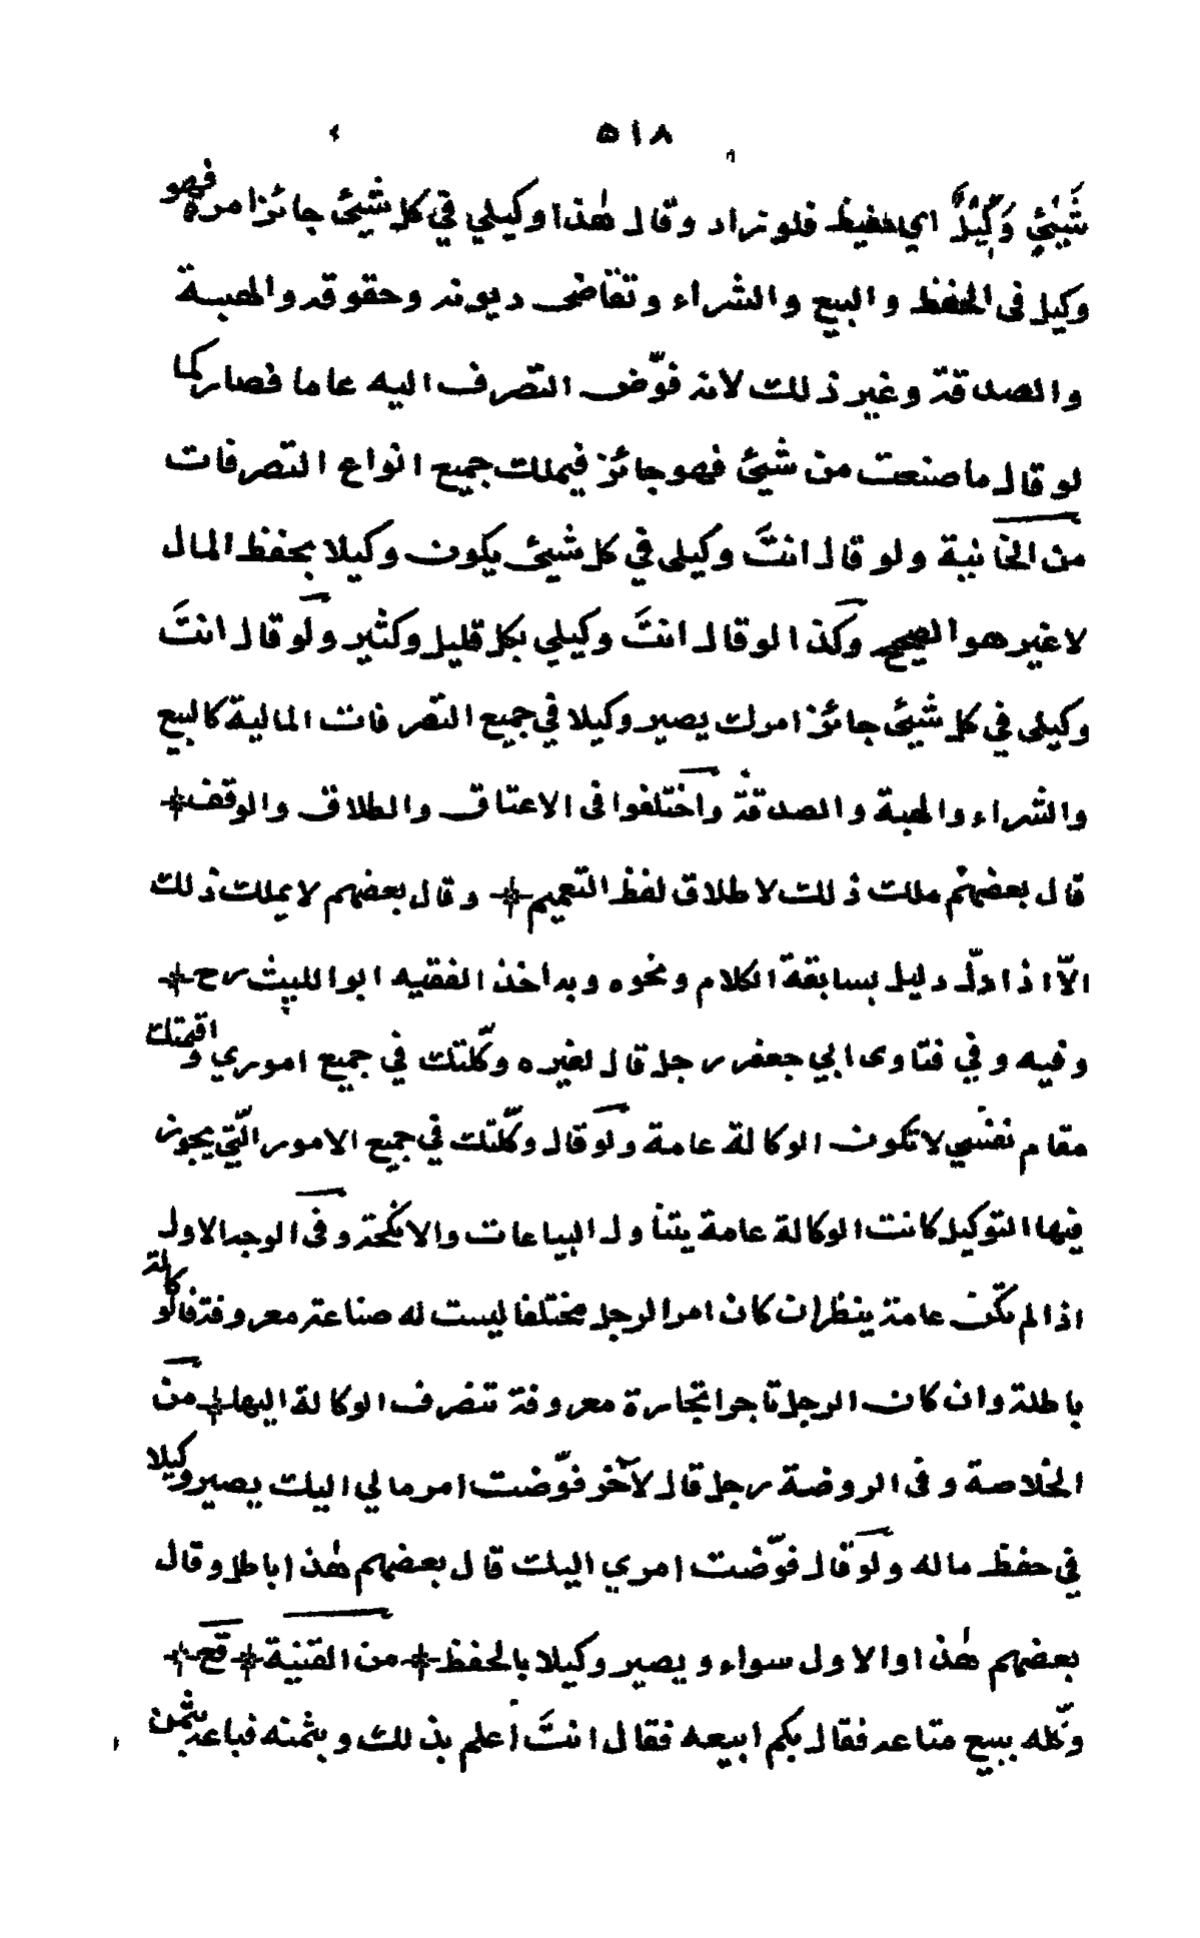 ٥١٨
شَيْئٍ وَكِيْلٌ اي حفيظ فلو زاد وقال هٰذا وكيلي في كل شيئ جائز امره فهو
وكيل فى الحفظ و البيع والشراء و تقاضى ديونه وحقوقه والهبـة
والصدقة وغير ذلك لانه فوّض التصرف اليه عاما فصار كما
لو قال ما صنعت من شيئ فهو جائز فيملك جميع انواع التصرفات
من الخانية ولو قال انتَ وكيلى في كل شيئ يكون وكيلا بحفظ المال
لا غير هو الصحيح وكذا لو قال انتَ وكيلي بكل قليل وكثير ولو قال انتَ
وكيلى في كل شيئ جائز امرك يصير وكيلا في جميع التصرفات المالية كالبيع
والشراء والهبة والصدقة واختلفوا فى الاعتاق والطلاق والوقف *
قال بعضهم ملك ذلك لاطلاق لفظ التعميم * وقال بعضهم لا يملك ذلك
الاّ اذا دلّ دليل بسابقة الكلام ونحوه وبه اخذ الفقيه ابو الليث رح *
وفيه وفي فتاوى ابي جعفر رجل قال لغيره وكّلتك في جميع اموري واقمتك
مقام نفسي لا تكون الوكالة عامة ولو قال وكّلتك في جميع الامور الّتي يجوز
فيها التوكيل كانت الوكالة عامة يتناول البياعات والانكحة وفى الوجه الاول
اذا لم تكن عامة ينظر ان كان امر الرجل مختلفا ليست له صناعة معروفة فالوكالة
باطلة وان كان الرجل تاجرا تجارة معروفة تنصرف الوكالة اليها * من
الخلاصة وفى الروضة رجل قال لآخر فوّضت امر مالي اليك يصير وكيلا
في حفظ ماله ولو قال فوّضت امري اليك قال بعضهم هٰذا باطل وقال
بعضهم هٰذا والاول سواء ويصير وكيلا بالحفظ * من القنية * قع *
وكّله ببيع متاعه فقال بكم ابيعه فقال انتَ أعلم بذلك وبثمنه فباعه بثمن